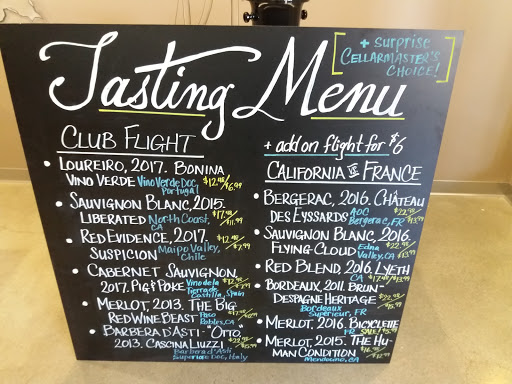 Tasting Menu
+ Surprise
Cellarmaster's
Choice!
Club Flight
• Loureiro, 2017. Bonina
Vino Verde Vino Verde Doc, Portugal $12.48/$6.99
• Sauvignon Blanc, 2015.
Liberated North Coast, CA $17.48/$11.99
• Red Evidence, 2017.
Suspicion Maipo Valley, Chile $12.48/$7.99
• Cabernet Sauvignon,
2017. Pig & Poke Vino de la Tierra de Castilla, Spain
• Merlot, 2013. The Big
Red Wine Beast Paso Robles, CA
• Barbera d'Asti "Coto"
2013. Cascina Liuzzi
Barbera d'Asti
Superiore Doc, Italy
+ add on flight for $6
California vs France
• Bergerac, 2016. Château
des Eyssards AOC Bergerac, FR $22.98/$13.99
• Sauvignon Blanc, 2016.
Flying Cloud Edna Valley, CA
• Red Blend, 2016. Lyeth
CA $17.48/$13.99
• Bordeaux, 2011. Brun-
Despagne Heritage
Bordeaux
Superieur, FR
• Merlot, 2016. Bicyclette
FR Sale!
• Merlot, 2015. The Hu-
man Condition
Mendocino, CA